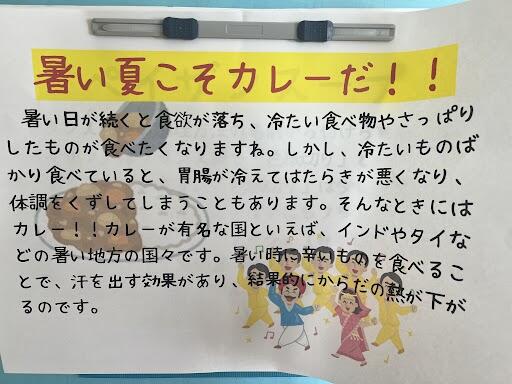 暑い夏こそカレーだ！！
暑い日が続くと食欲が落ち、冷たい食べ物やさっぱり
したものが食べたくなりますね。しかし、冷たいものば
かり食べていると、胃腸が冷えてはたらきが悪くなり、
体調をくずしてしまうこともあります。そんなときには
カレー！！カレーが有名な国といえば、インドやタイな
どの暑い地方の国々です。暑い時に辛いものを食べるこ
とで、汗を出す効果があり、結果的にからだの熱が下が
るのです。